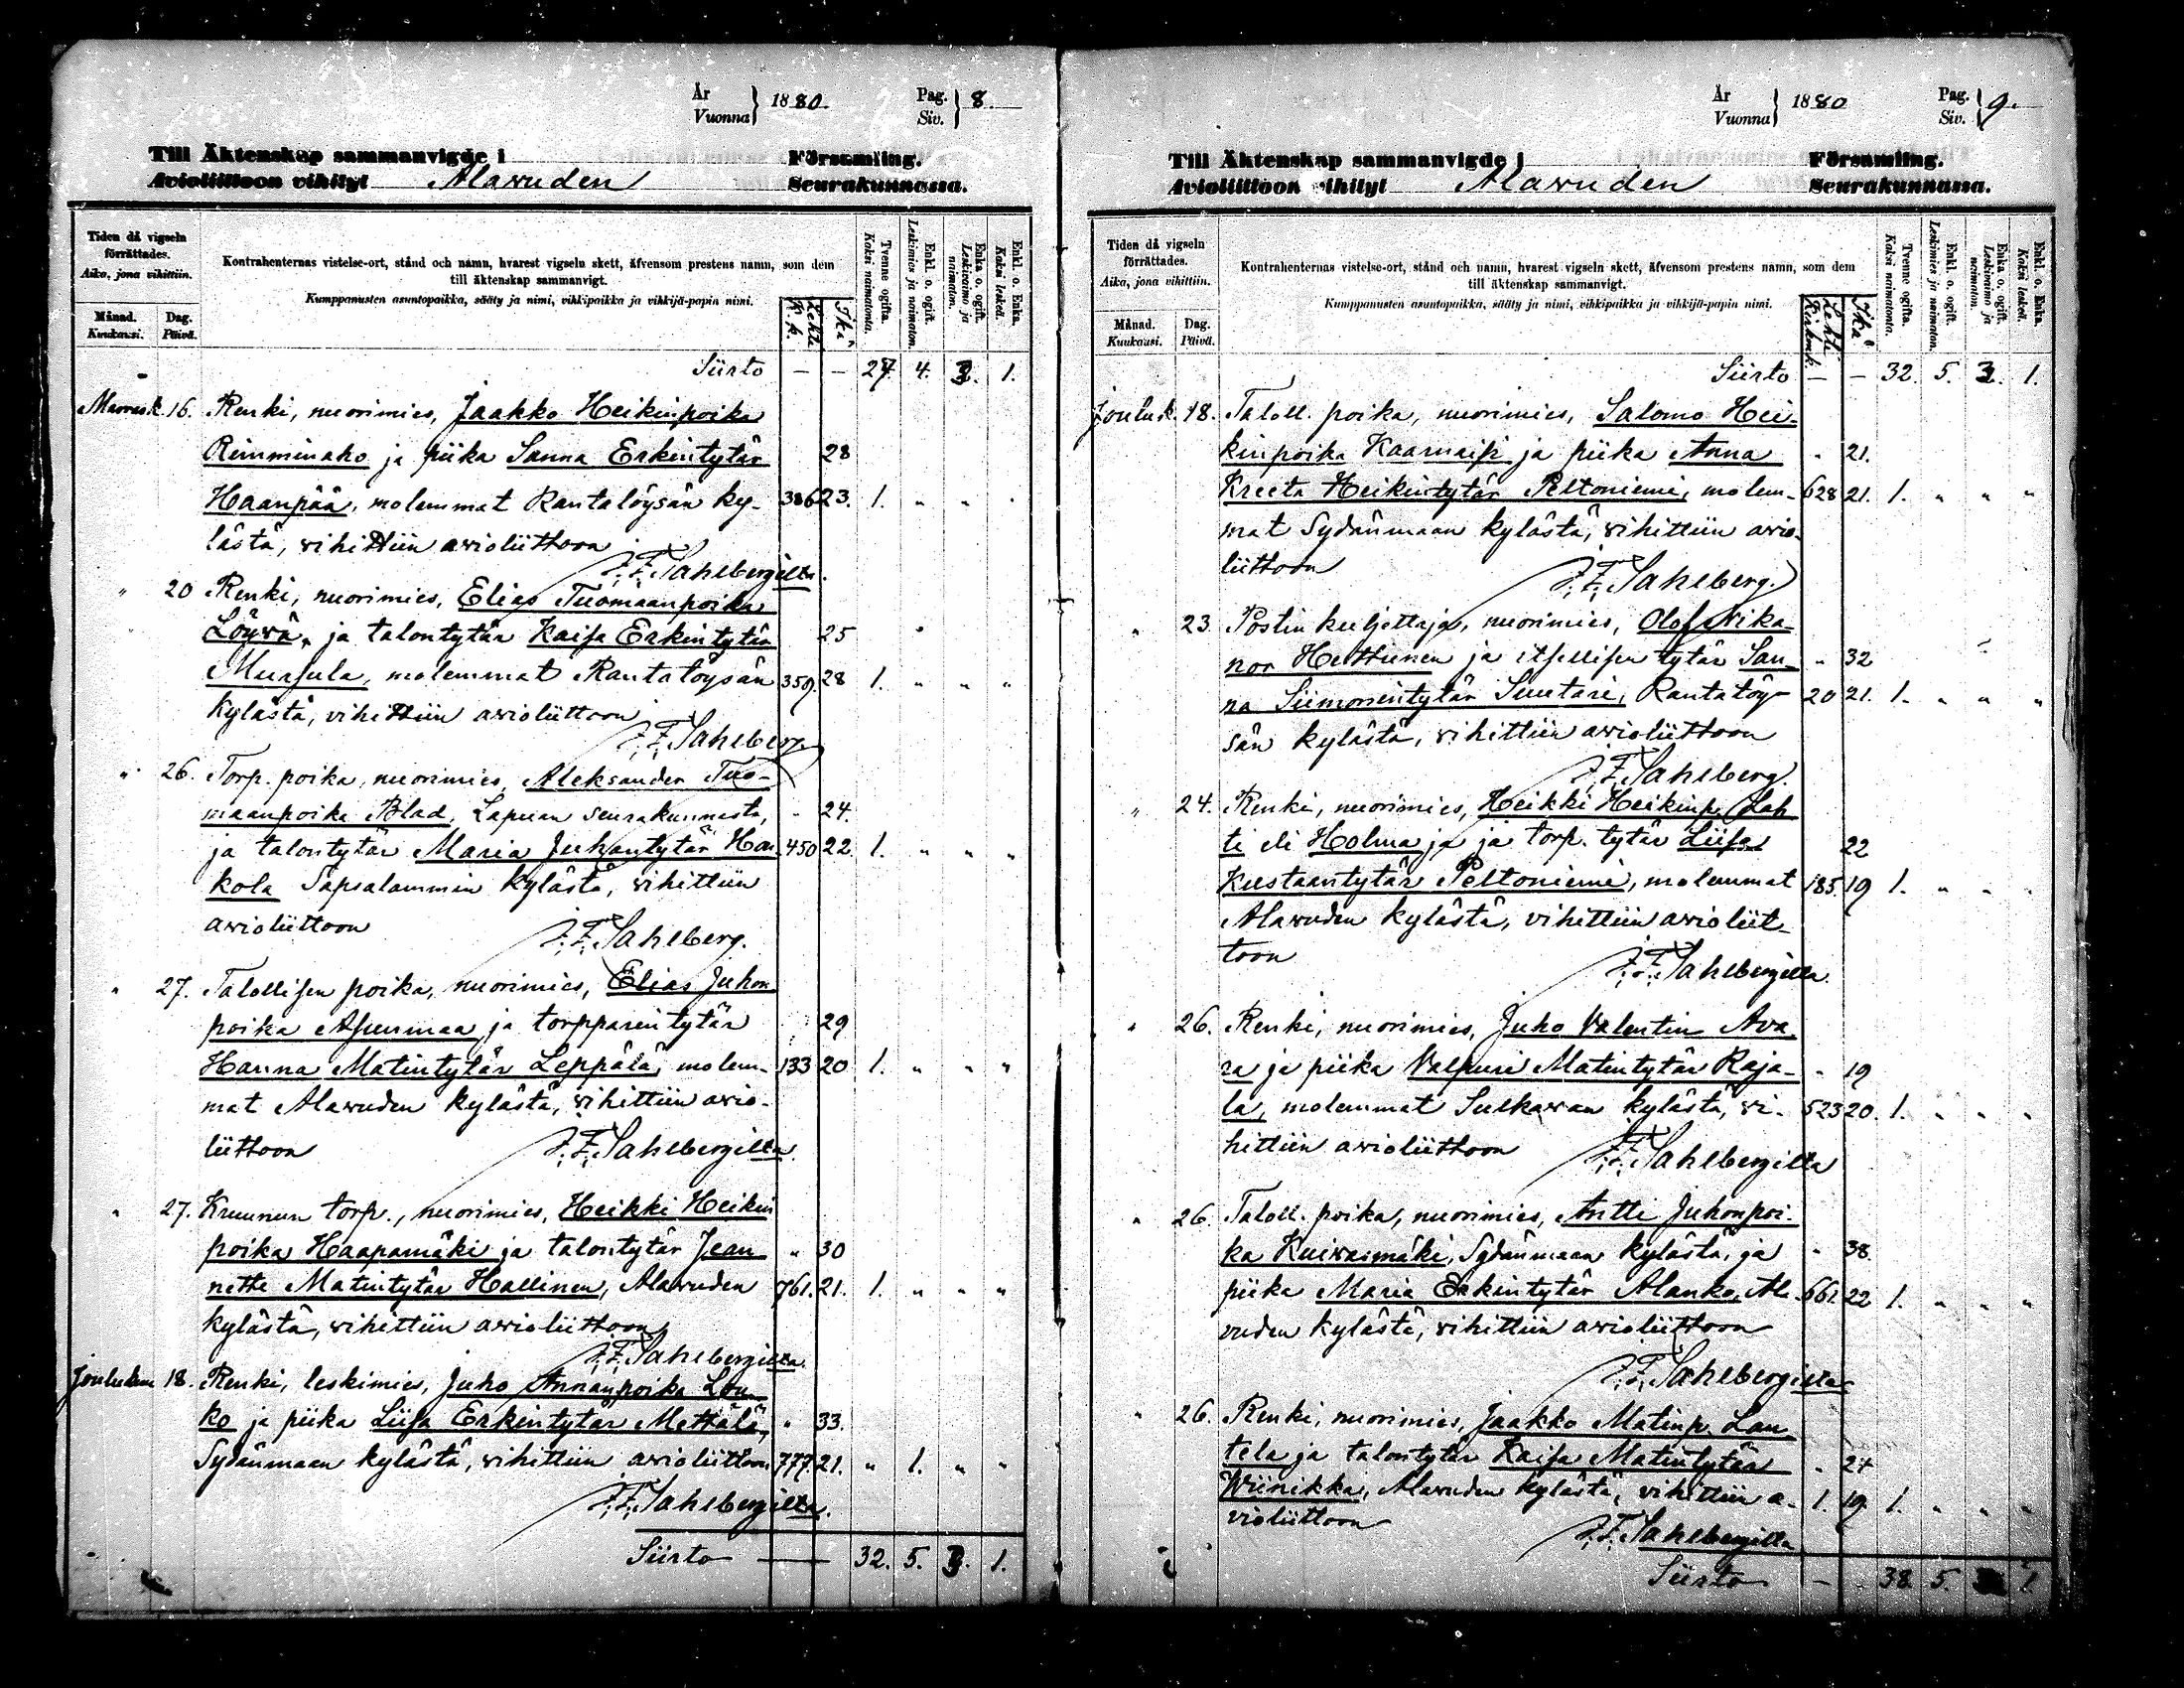 År Vuonna } 1880. Pag. Siv. } 8.
Till Äktenskap sammanvigde i Församling.
Avioliittoon vihityt Alavuden Seurakunnassa.
Tiden då vigseln förrättades.
Aika, jona vihittiin.
Månad. Kuukausi.
Dag. Päivä.
Kontrahenternas vistelse-ort, stånd och namn, hvarest vigseln skett, äfvensom prestens namn, som dem
till äktenskap sammanvigt.
Kumppanusten asuntopaikka, sääty ja nimi, vihkipaikka ja vihkijä-papin nimi.
Lehti K. k.
Ikä
Tvenne ogifta. Kaksi naimatonta.
Enkl. o. ogift. Leskimies ja naimaton.
Enka o. ogift. Leskivaimo ja naimaton.
Enkl. o. Enka. Kaksi leskeä.
Siirto — — 27. 4. 3. 1.
Marrask. 16. Renki, nuorimies, Jaakko Heikinpoika
Rimminaho ja piika Sanna Erkintytär 28
Haanpää, molemmat Rantatöysän ky- 386 23. 1. " " "
lästä, vihittiin avioliittoon
J. F. Sahlbergilta.
" 20 Renki, nuorimies, Elias Tuomaanpoika
Löyvä, ja talontytär Kaisa Erkintytär 25
Mursula, molemmat Rantatöysän 359. 28 1. " " "
kylästä, vihittiin avioliittoon
J. F. Sahlberg.
" 26. Torp. poika, nuorimies, Aleksander Tuo-
maanpoika Blad, Lapuan seurakunnasta, " 24.
ja talontytär Maria Juhantytär Han- 450 22. 1. " " "
kola Sapsalammin kylästä, vihittiin
avioliittoon
J. F. Sahlberg.
" 27. Talollisen poika, nuorimies, Elias Juhon
poika Asunmaa ja torpparin tytär 29
Hanna Matintytär Leppälä, molem- 133 20 1. " " "
mat Alavuden kylästä, vihittiin avio-
liittoon J. F. Sahlbergilta.
" 27. Kruunun torp., nuorimies, Heikki Heikin
poika Haapamäki ja talontytär Jean " 30
nette Matintytär Hallinen, Alavuden 761. 21. 1. " " "
kylästä, vihittiin avioliittoon
J. F. Sahlbergilta.
Jouluk. 18. Renki, leskimies, Juho Annanpoika Lou-
ko ja piika Liisa Erkintytär Mettälä, " 33.
Sydänmaan kylästä, vihittiin avioliittoon 777. 21. " 1. " "
J. F. Sahlbergilta.
Siirto — 32. 5. 3. 1.
År Vuonna } 1880 Pag. Siv. } 9.
Till Äktenskap sammanvigde i Församling.
Avioliittoon vihityt Alavuden Seurakunnassa.
Tiden då vigseln förrättades.
Aika, jona vihittiin.
Månad. Kuukausi.
Dag. Päivä.
Kontrahenternas vistelse-ort, stånd och namn, hvarest vigseln skett, äfvensom prestens namn, som dem
till äktenskap sammanvigt.
Kumppanusten asuntopaikka, sääty ja nimi, vihkipaikka ja vihkijä-papin nimi.
Lehti Kirkonk.
Ikä
Tvenne ogifta. Kaksi naimatonta.
Enkl. o. ogift. Leskimies ja naimaton.
Enka o. ogift. Leskivaimo ja naimaton.
Enkl. o. Enka. Kaksi leskeä.
Siirto — — 32. 5. 3. 1.
Jouluk. 18. Taloll. poika, nuorimies, Salomo Hei-
kinpoika Kaarnaisi ja piika Anna " 21.
Kreeta Heikintytär Peltoniemi, molem- 628 21. 1. " " "
mat Sydänmaan kylästä, vihittiin avio-
liittoon
J. F. Sahlberg.
" 23. Postin kuljettaja, nuorimies, Olof Nika-
nor Hettunen ja itsellisen tytär San- " 32
na Siimonintytär Suutari, Rantatöy- 20 21. 1. " " "
sän kylästä, vihittiin avioliittoon
J. F. Sahlberg.
" 24. Renki, nuorimies, Heikki Heikinp. Lah
ti eli Holma ja ja torp. tytär Liisa 22
Kustaantytär Peltoniemi, molemmat 185. 19 1. " " "
Alavuden kylästä, vihittiin avioliit-
toon
J. F. Sahlbergilta.
" 26. Renki, nuorimies, Juho Valentin Ava
ra ja piika Valpuri Matintytär Raja- " 19
la, molemmat Sulkavan kylästä, vi- 523 20. 1. " " "
hittiin avioliittoon J. F. Sahlbergilta
" 26. Taloll. poika, nuorimies, Antti Juhonpoi-
ka Kuivasmäki, Sydänmaan kylästä, ja " 38.
piika Maria Erkintytär Alanko, Ala- 661. 22 1. " " "
vuden kylästä, vihittiin avioliittoon
J. F. Sahlbergilta
" 26. Renki, nuorimies, Jaakko Matinp. Lau
tela ja talontytär Kaisa Matintytär " 24
Wiinikka, Alavuden kylästä, vihittiin a- 1. 19. 1. " " "
violiittoon
J. F. Sahlbergilta
Siirto — — 38. 5. 1.